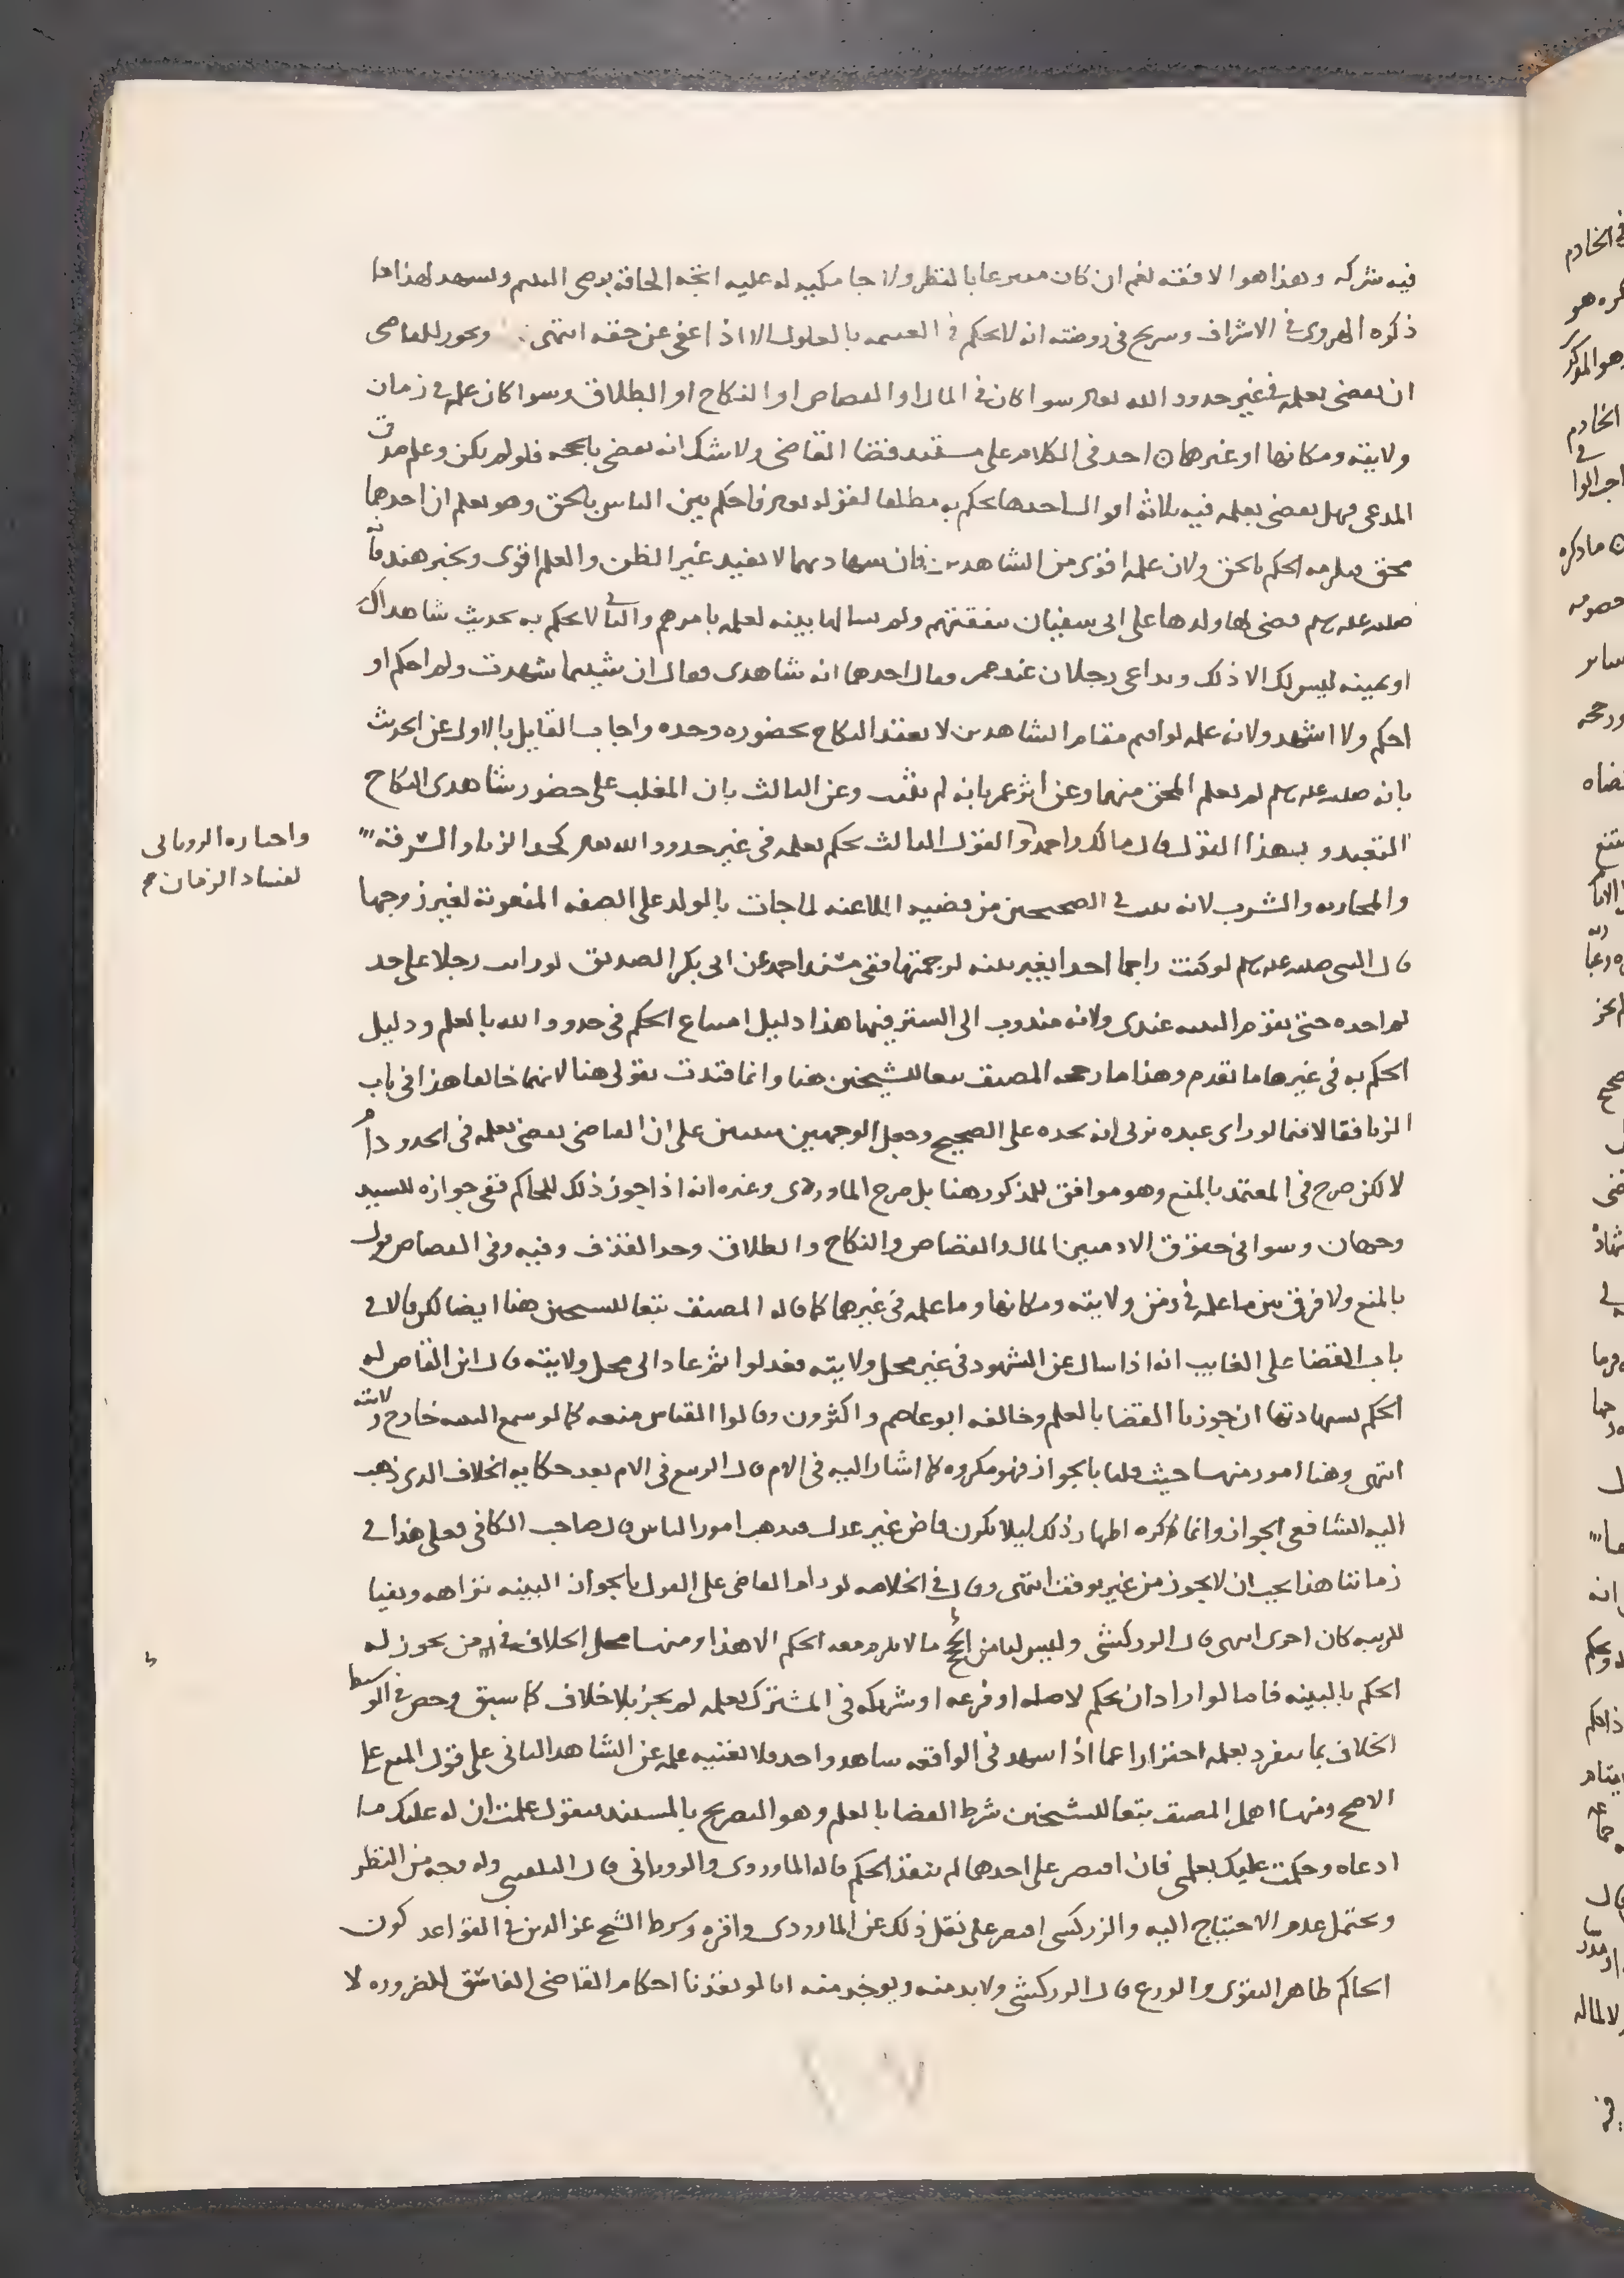 فيه شركه وهذا هو الافقه نعم ان كان متبرعا بالنظر ولا جامكيه له عليه اتجه الحاقه بوصي اليتيم ويشهد لهذا ما
ذكره الهروي في الاشراف وسريج في روضته انه لا يحكم في القسمه بالعلول الا اذا عفى عن حقه انتهى ويجوز للقاضي
ان يقضي بعلمه في غير حدود الله تعالى سوا كان في المال او القصاص او النكاح او الطلاق وسوا كان علمه في زمان
ولايته ومكانها او غيرها احد في الكلام على مستند قضا القاضي ولا شك انه يقضي بالحجه فلو لم يكن وعلم صدق
المدعي فهل يقضي بعلمه فيه ثلاثة اقوال احدها يحكم به مطلقا لقوله تعالى فاحكم بين الناس بالحق وهو يعلم ان احدهما
محق فيلزمه الحكم بالحق ولان علمه اقوى من الشاهدين فان شهادتهما لا تفيد غير الظن والعلم اقوى وبخبر هند فانه
صلى الله عليه وسلم قضى لها ولولدها على ابي سفيان بنفقتهم ولم يسالها بينه لعلمه بامرهم والثاني لا يحكم به لحديث شاهداك
او يمينه ليس لك الا ذلك وتداعى رجلان عند عمر وقال احدهما انه شاهدي فقال ان شيتما شهدت ولم احكم او
احكم ولا اشهد ولانه علمه لو اقيم مقام الشاهدين لانعقد النكاح بحضوره وحده واجاب القايل بالاول عن الحديث
بانه صلى الله عليه وسلم لم يعلم المحق منهما وعن اثر عمر بانه لم يثبت وعن الثالث بان المغلب على حضور شاهدي النكاح
التعبد وبهذا القول قال مالك واحمد والقول الثالث يحكم بعلمه في غير حدود الله تعالى كحد الزنا والسرقه
واختاره الروياني
لفساد الزمان
والمحاربه والشرب لانه ثبت في الصحيحين من قضيه الملاعنه لما جات بالولد على الصفه المنعوتة لغير زوجها
قال النبي صلى الله عليه وسلم لو كنت راجما احدا بغير بينه لرجمتها ففي مسند احمد عن ابي بكر الصديق لو رايت رجلا على حد
لم احده حتى تقوم البينه عندي ولانه مندوب الى الستر فيها هذا دليل امتناع الحكم في حدود الله بالعلم ودليل
الحكم به في غيرها ما تقدم وهذا ما رجحه المصنف تبعا للشيخين هنا وانما قيدت بقولي هنا لانهما خالفا هذا في باب
الزنا فقالا فيما لو راى عبده يزني انه يحده على الصحيح وجعل الوجهين مبنيين على ان القاضي يقضي بعلمه في الحدود ام
لا لكن صرح في المعتمد بالمنع وهو موافق للمذكور هنا بل صرح الماوردي وغيره انه اذا جوز ذلك للحاكم ففي جوازه للسيد
وجهان وسوا في حقوق الادميين المال والقصاص والنكاح والطلاق وحد القذف وفيه وفي القصاص قول
بالمنع ولا فرق بين ما علمه في زمن ولايته ومكانها وما علمه في غيرهما كما قاله المصنف تبعا للشيخين هنا ايضا لكن قالا في
باب القضا على الغايب انه اذا سال عن الشهود في غير محل ولايته فعدلوا ثم عاد الى محل ولايته قال ابن القاص له
الحكم بشهادتها ان جوزنا القضا بالعلم وخالفه ابو عاصم واكثرون وقالوا القياس منعه كما لو سمع البينه خارج ولايته
انتهى وهنا امور منها حيث قلنا بالجواز فهو مكروه كما اشار اليه في الام قال الربيع في الام بعد حكايه الخلاف الذي ذهب
اليه الشافعي الجواز وانما كره اظهار ذلك ليلا يكون قاض غير عدل فيذهب امور الناس قال صاحب الكافي فعلى هذا في
زماننا هذا يجب ان لا يجوز من غير توقف انتهى وقال في الخلاصه لو دام القاضي على القول بالجواز البينه نزاهه ونفيا
للريبه كان احرى انتهى قال الزركشي وليس لنا من الحجج ما لا يلزم معه الحكم الا هذا ومنها محل الخلاف في من يجوز له
الحكم بالبينه فاما لو اراد ان يحكم لاصله او فرعه او شريكه في المشترك بعلمه لم يجز بلا خلاف كما سبق وخص في الوسيط
الخلاف بما ينفرد بعلمه احترازا عما اذا شهد في الواقعه شاهد واحد فلا يغنيه علمه عن الشاهد الثاني على قول المنع على
الاصح ومنها اهمل المصنف تبعا للشيخين شرط القضا بالعلم وهو التصريح بالمستند فيقول علمت ان له عليك ما
ادعاه وحكمت عليك بعلمي فان اقتصر على احدهما لم ينفذ الحكم قاله الماوردي والروياني قال البلقيني وله وجه من النظر
ويحتمل عدم الاحتياج اليه والزركشي اقتصر على نقل ذلك عن الماوردي واقره وشرط الشيخ عز الدين في القواعد كون
الحاكم ظاهر التقوى والورع قال الزركشي ولا بد منه ويوخذ منه انا لو نفذنا احكام القاضي الفاسق للضروره لا